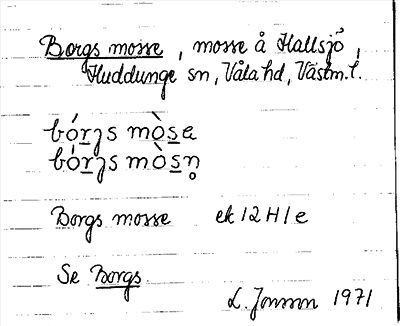 Borgs mosse, mosse å Hallsjö,
Huddunge sn, Våla hd, Västm. l.
bórjs mòsa
bórjs mòsn̥
Borgs mosse ek 12 H 1 e
Se Borgs
L. Jonsson 1971